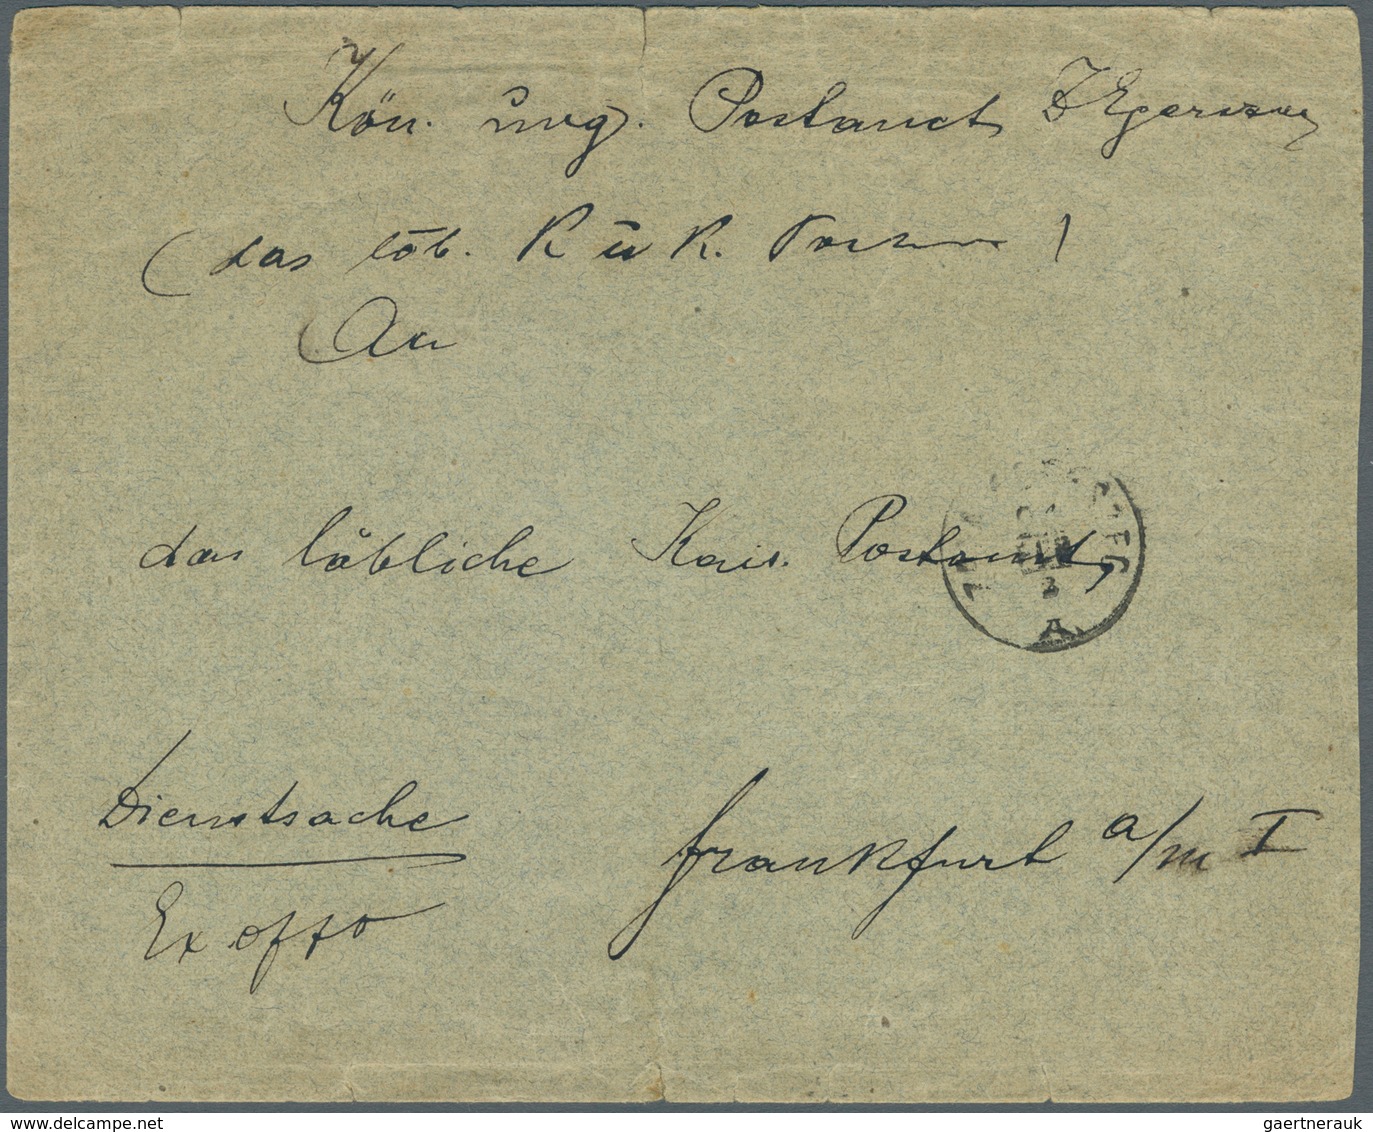 Kön. ung. Postamt ZEgerszeg
(das löb. K u K.
An
das löbliche Kais. Postamt,
A
Dienstsache
Frankfurt a/m I
Ex offo
gaertnerauk
delcampe.net